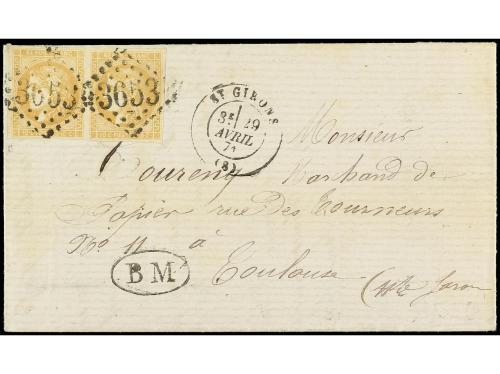 3653 3653
ST GIRONS
3E 29
AVRIL
71
(8)
Monsieur
Marchand de
Papier rue des Tourneurs
No 11 à
BM
Toulouse
(Hte Garon